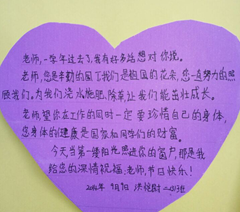 老师,一学年过去了,我有好多话想对你说。
老师,您是辛勤的园丁我们是祖国的花朵,您一直努力的照
顾我们。为我们浇水施肥,除草让我们能茁壮成长。
老师,望你在工作的同时一定要珍惜自己的身体,
您身体的健康是国家和同学们的财富。
今天当第一缕阳光照进你的窗户,那是我
给您的深情祝福,老师,节日快乐!